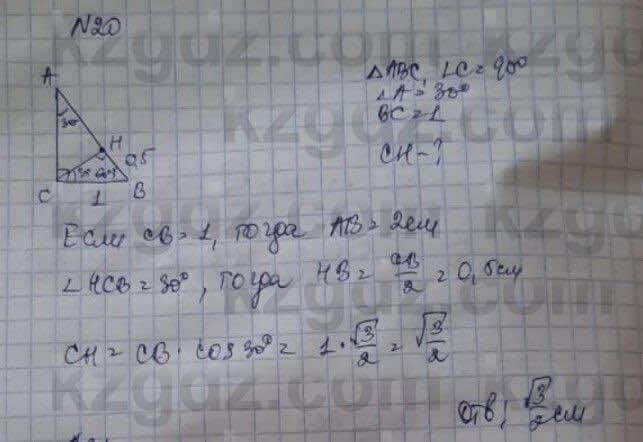 N20
△ABC, ∠C = 90°
∠A = 30°
BC = 1
CH - ?
A
30°
H
0,5
30° 60°
C
1
B
Если CB = 1, тогда AB = 2см
∠HCB = 30°, тогда HB = CB/2 = 0,5см
CH = CB · cos 30° = 1 · √3/2 = √3/2
Отв: √3/2 см
kzgdz.com